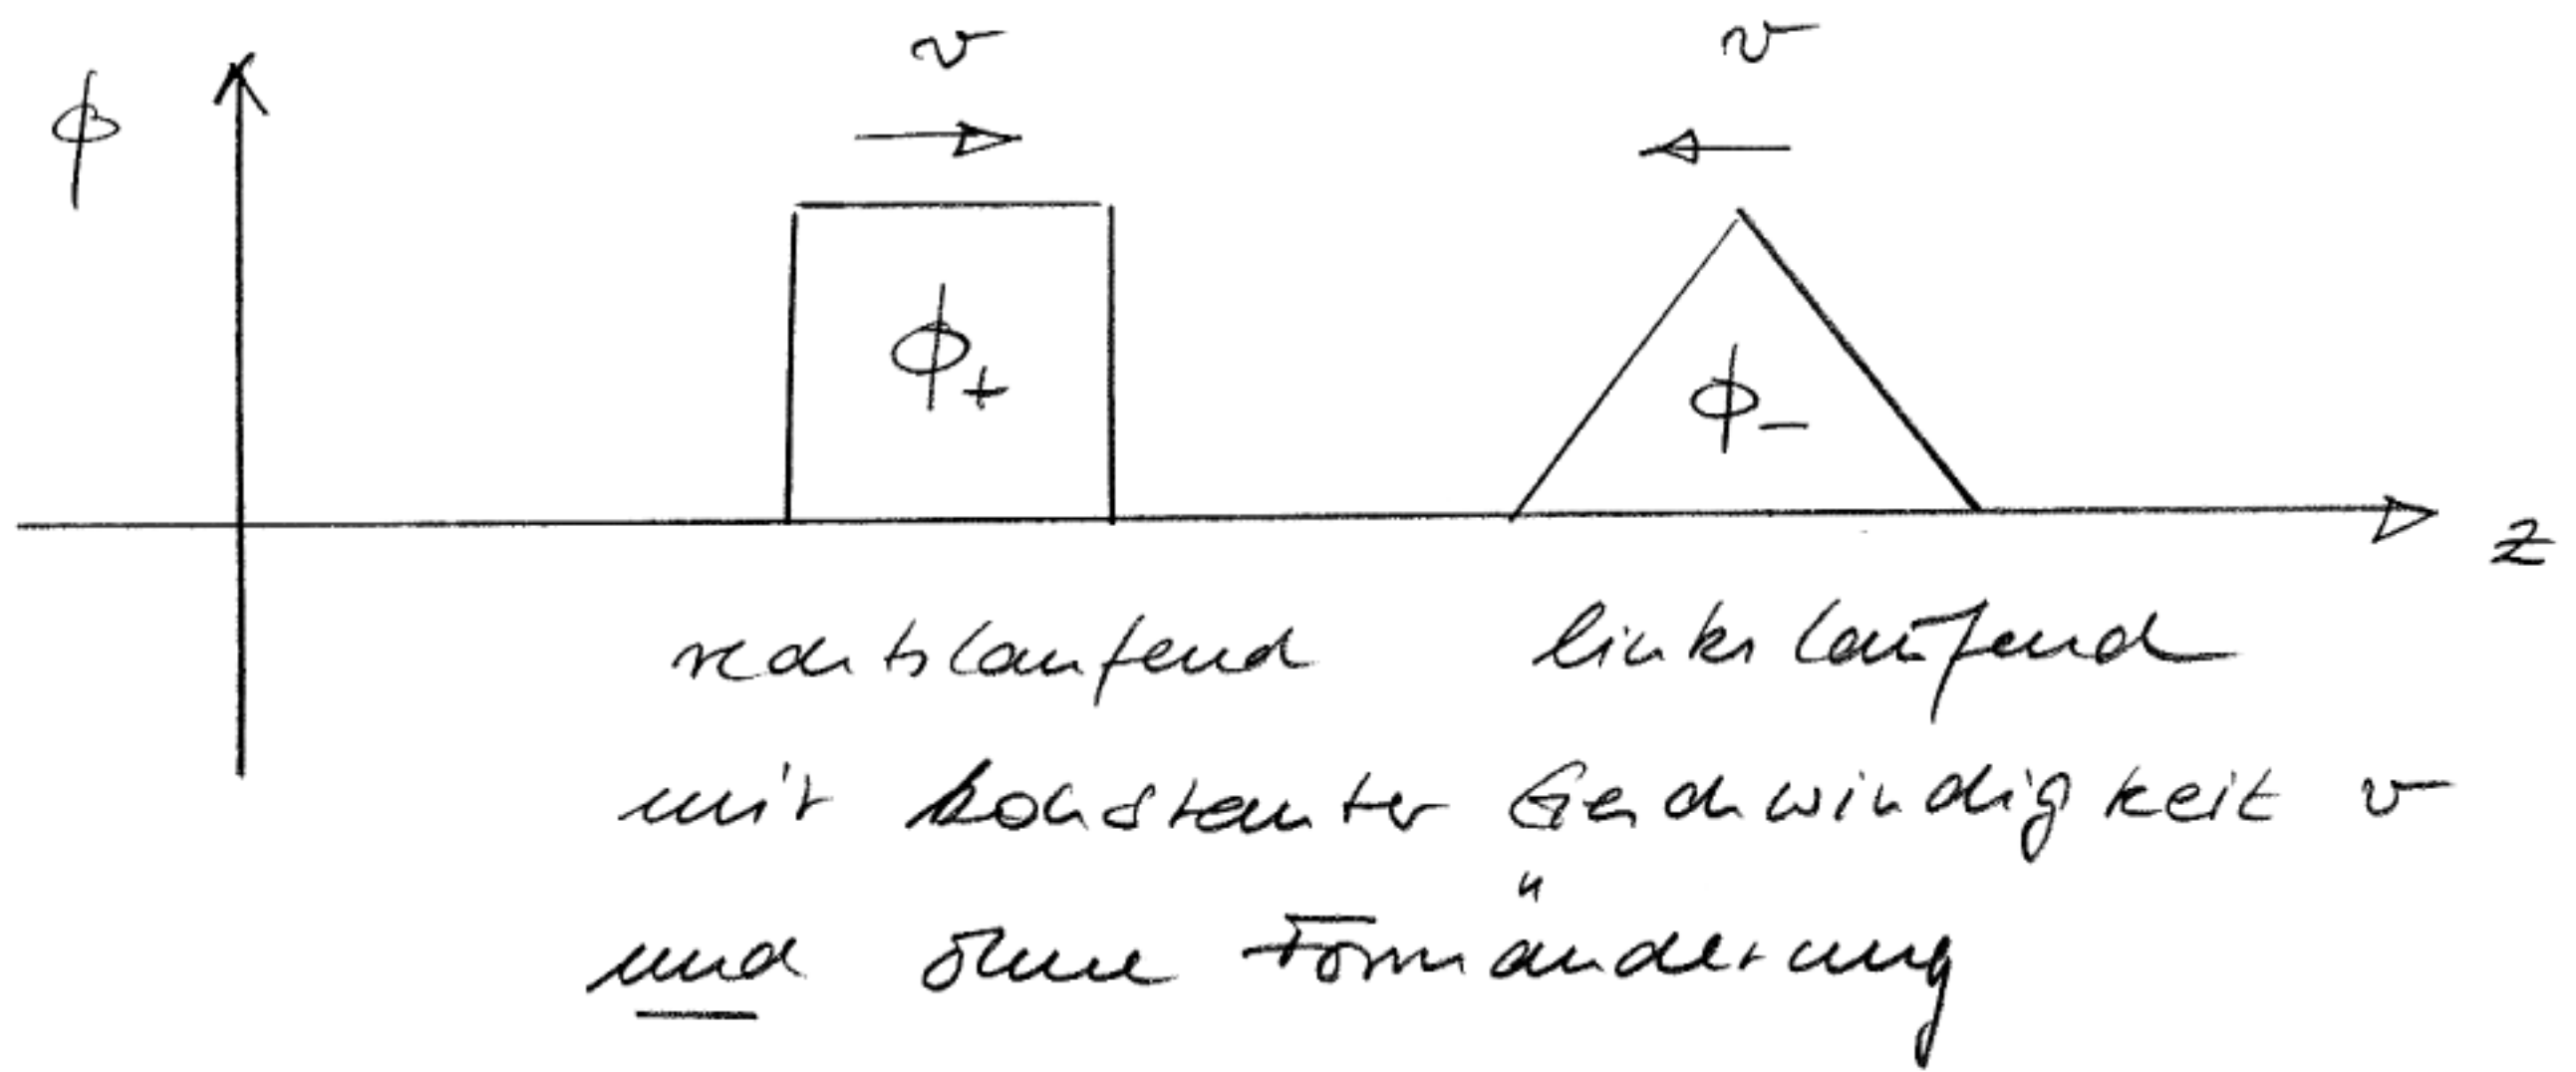 v v
ϕ
ϕ+ ϕ−
z
rechtslaufend linkslaufend
mit konstanter Geschwindigkeit v
und ohne Formänderung